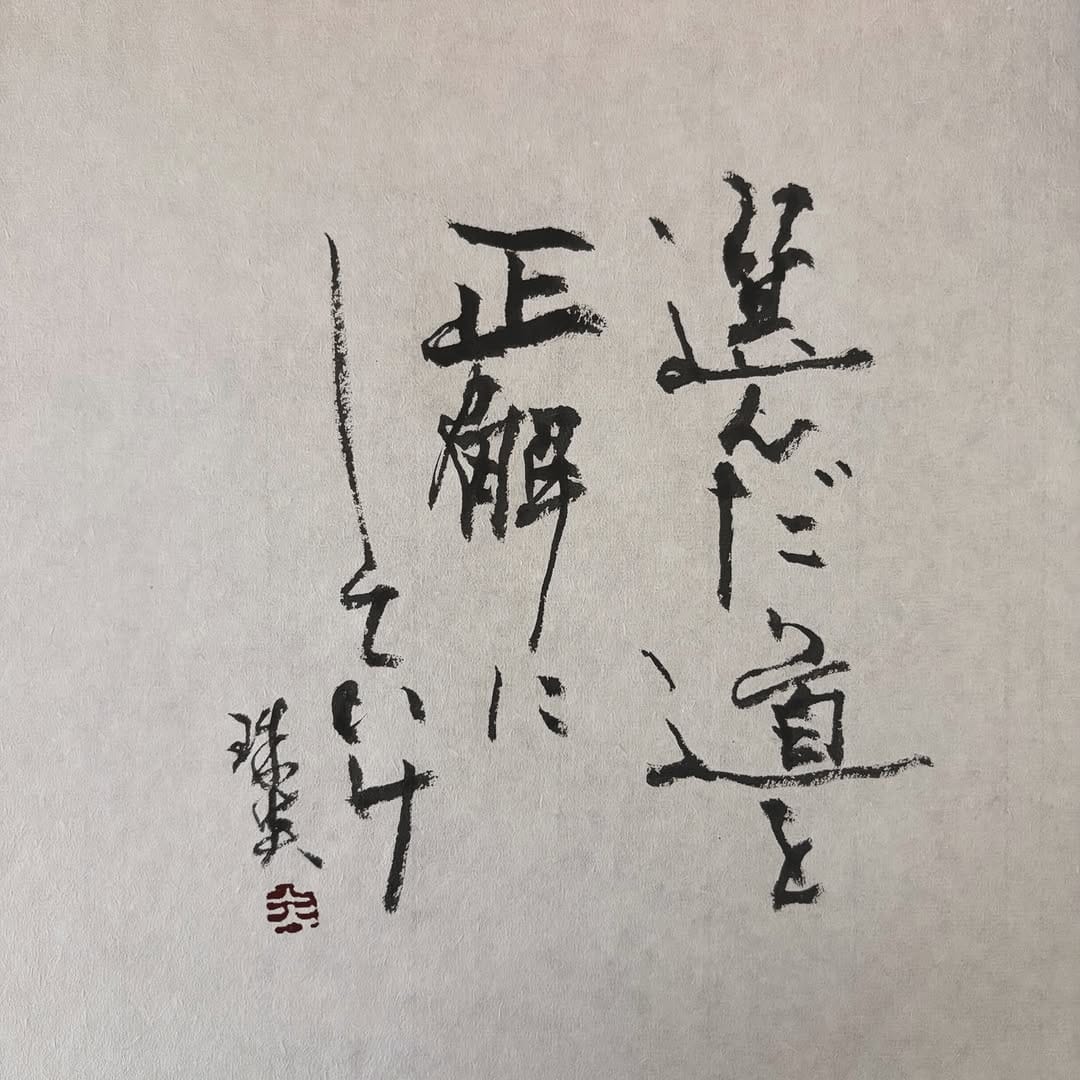 選んだ道を
正解に
していけ